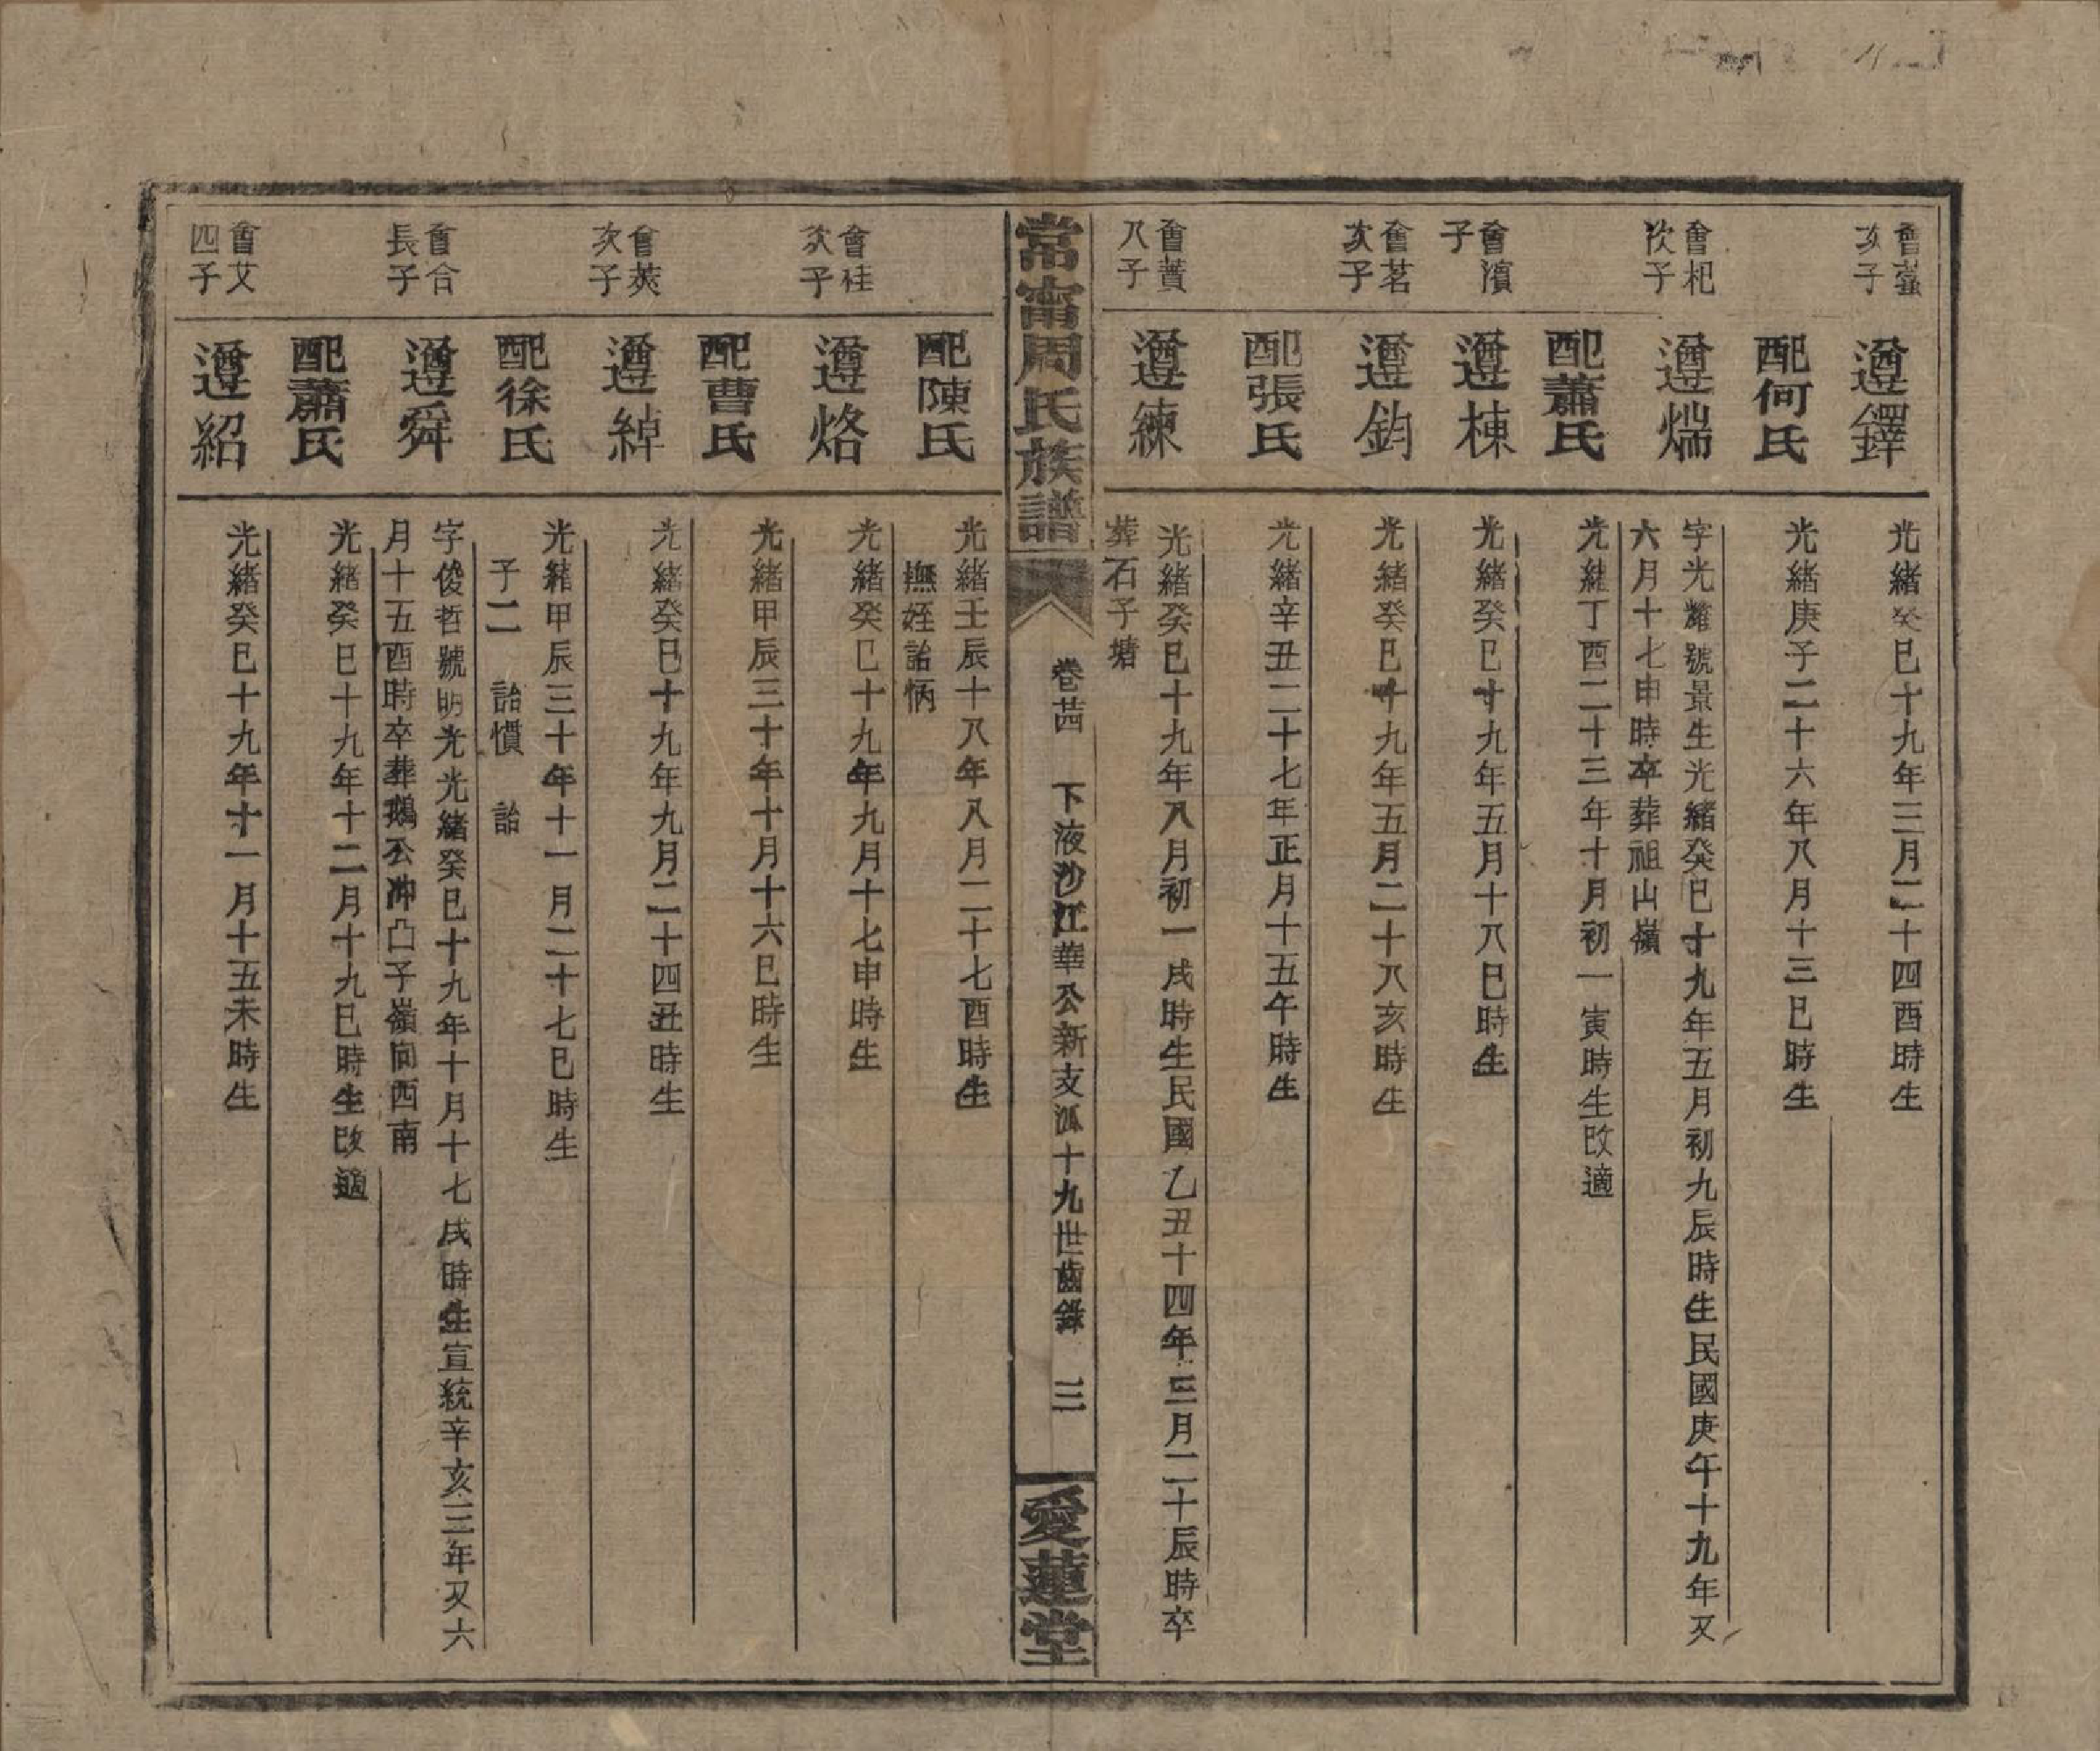 會蘂
次子
遵鐸
光緒癸巳十九年三月二十四酉時生
配何氏
光緒庚子二十六年八月十三巳時生
會杞
次子
遵煓
字光耀號景生光緒癸巳十九年五月初九辰時生民國庚午十九年又
六月十七申時卒葬祖山嶺
配蕭氏
光緒丁酉二十三年十月初一寅時生改適
會濱
子
遵棟
光緒癸巳十九年五月十八巳時生
會茗
次子
遵鈞
光緒癸巳十九年五月二十八亥時生
配張氏
光緒辛丑二十七年正月十五午時生
會蕢
八子
遵練
光緒癸巳十九年八月初一戌時生民國乙丑十四年三月二十辰時卒
葬石子塘
常甯周氏族譜
卷茜 下液沙江華公新支派十九世齒錄 三
愛蓮堂
配陳氏
光緒壬辰十八年八月二十七酉時生
撫姪詒怲
會桂
次子
遵烙
光緒癸巳十九年九月十七申時生
配曹氏
光緒甲辰三十年十月十六巳時生
會莢
次子
遵綽
光緒癸巳十九年九月二十四丑時生
配徐氏
光緒甲辰三十年十一月二十七巳時生
子二 詒慣 詒
會合
長子
遵舜
字俊哲號明光光緒癸巳十九年十月十七戌時生宣統辛亥三年又六
月十五酉時卒葬鵝公冲凸子嶺向西南
配蕭氏
光緒癸巳十九年十二月十九巳時生改適
會艾
四子
遵紹
光緒癸巳十九年十一月十五未時生